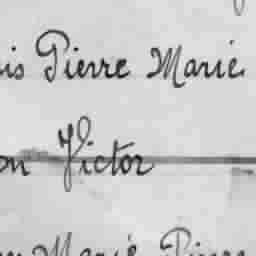 is Pierre Marie
on Victor
Marie Pierre